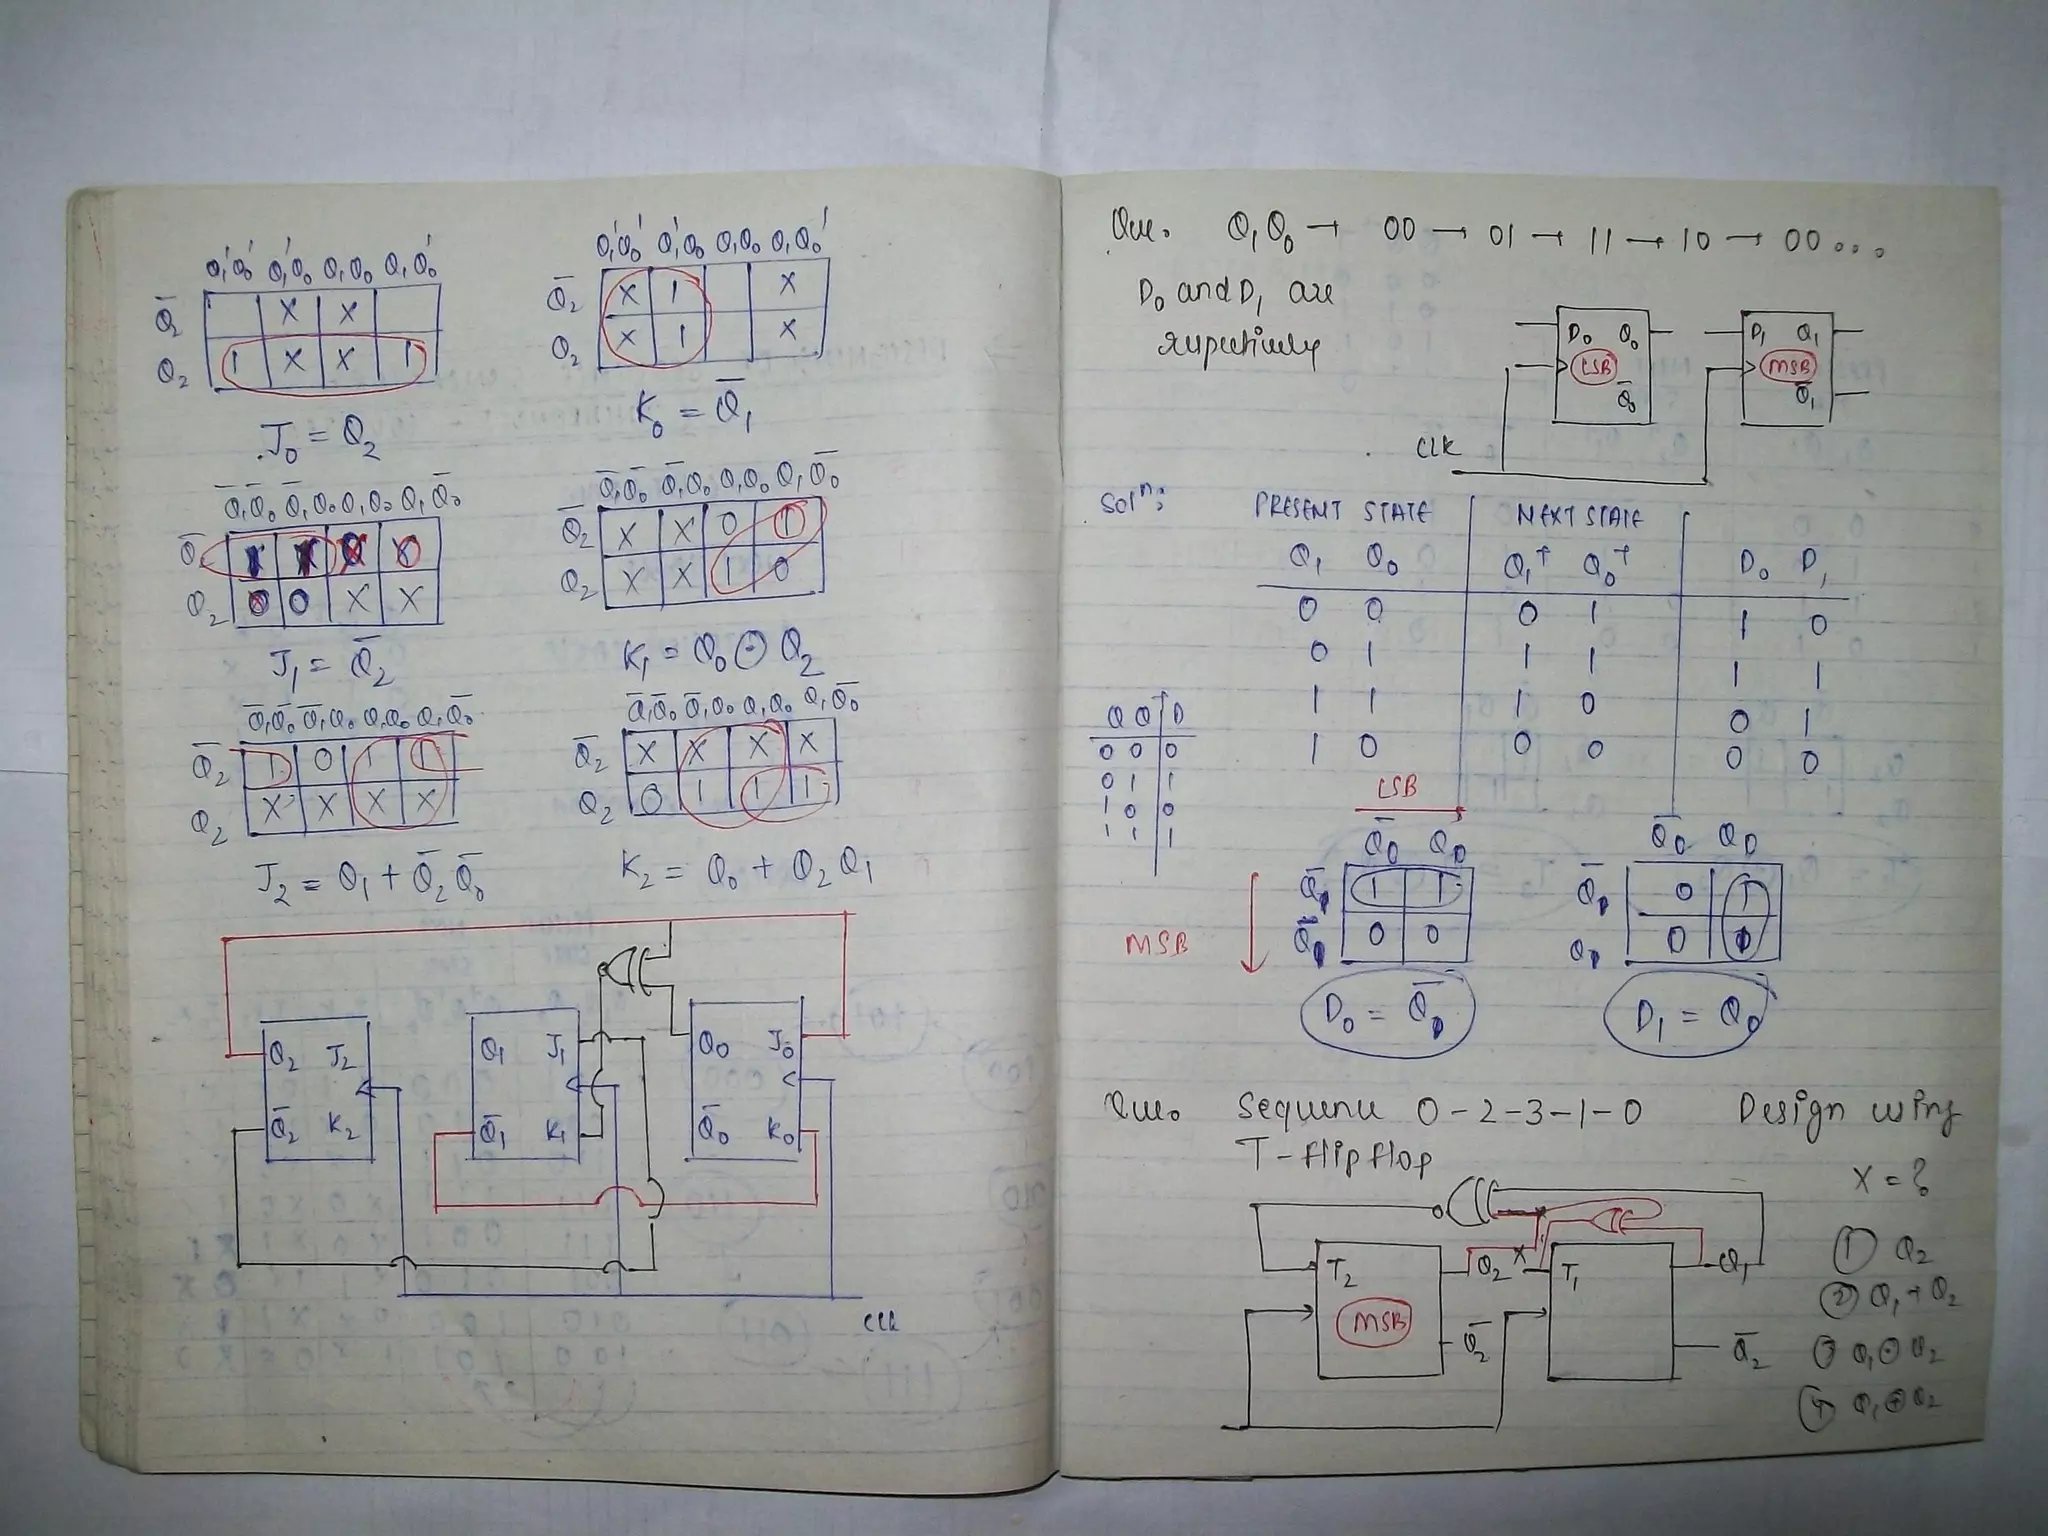 Q₁'Q₀' Q₁'Q₀ Q₁Q₀ Q₁Q₀'
Q̄₂ X X
Q₂ 1 X X 1
J₀ = Q₂
Q₁'Q₀' Q₁'Q₀ Q₁Q₀ Q₁Q₀'
Q̄₂ X 1 X
Q₂ X 1 X
K₀ = Q̄₁
Q̄₁Q̄₀ Q̄₁Q₀ Q₁Q₀ Q₁Q̄₀
Q̄₂
Q₂ 0 0 X X
J₁ = Q̄₂
Q̄₁Q̄₀ Q̄₁Q₀ Q₁Q₀ Q₁Q̄₀
Q̄₂ X X 0 1
Q₂ X X 1 0
K₁ = Q₀ ⊙ Q₂
Q̄₁Q̄₀ Q̄₁Q₀ Q₁Q₀ Q₁Q̄₀
Q̄₂ 1 0 1 1
Q₂ X X X X
J₂ = Q₁ + Q̄₂ Q̄₀
Q̄₁Q̄₀ Q̄₁Q₀ Q₁Q₀ Q₁Q̄₀
Q̄₂ X X X X
Q₂ 0 1 1 1
K₂ = Q₀ + Q₂ Q₁
Q₂ J₂ Q₁ J₁ Q₀ J₀
Q̄₂ K₂ Q̄₁ K₁ Q̄₀ K₀
Clk
Que. Q₁Q₀ → 00 → 01 → 11 → 10 → 00 ...
D₀ and D₁ are
respectively
D₀ Q₀ D₁ Q₁
LSB MSB
Q̄₀ Q̄₁
Clk
Solⁿ: PRESENT STATE NEXT STATE
Q₁ Q₀ Q₁⁺ Q₀⁺ D₀ D₁
0 0 0 1 1 0
0 1 1 1 1 1
1 1 1 0 0 1
1 0 0 0 0 0
Q Q⁺ D
0 0 0
0 1 1
1 0 0
1 1 1
LSB
MSB
Q̄₀ Q₀
Q̄₁ 1 1
0 0
D₀ = Q̄₁
Q̄₀ Q₀
Q̄₁ 0 1
Q₁ 0
D₁ = Q₀
Que. Sequence 0-2-3-1-0 Design using
T-flipflop
X = ?
T₂ Q₂ X T₁ Q₁
MSB
Q̄₂ Q̄₂
① Q₂
② Q₁ + Q₂
③ Q₁ ⊙ Q₂
④ Q₁ ⊕ Q₂